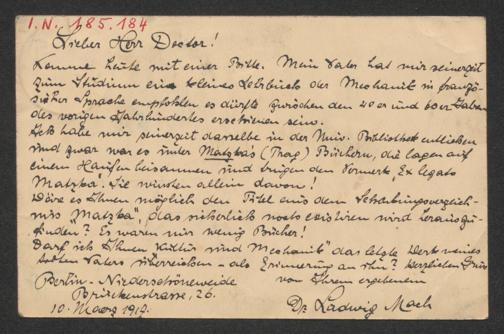 I.N. 185.184
Lieber Herr Doctor!
Komme heute mit einer Bitte. Mein Vater hat mir seinerzeit
zum Studium ein kleines Lehrbuch der Mechanik in franzö-
sischer Sprache empfohlen es dürfte zwischen den 40er und 60er Jahren
des vorigen Jahrhundertes erschienen sein.
Ich habe mir seinerzeit dasselbe in der Univ. Bibliothek entliehen
und zwar war es unter Matzka's (Prag) Büchern, die lagen auf
einem Haufen beisammen und trugen den Vermerk Ex legato
Matzka. Sie wussten allein davon!
Wäre es Ihnen möglich den Titel aus dem
"Matzka", das sicherlich noch existiren wird herauszu-
finden? Es waren nur wenig Bücher!
Darf ich Ihnen "Kultur und Mechanik" das letzte Werk meines
todten Vaters überreichen - als Erinnerung an ihn? Herzlichen Gruss
von Ihrem ergebenen
Berlin - Niederschöneweide
Brückenstrasse, 26.
Dr Ludwig Mach
10. Maerz 191